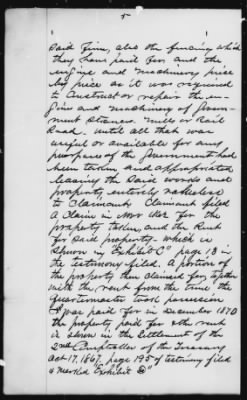 said Firm, also the fencing which
they have paid for and the
engine and machinery piece
by piece as it was required
to construct or repair the en-
gines and machinery of Govern-
ment Steamers. Mills or Rail
Road. until all that was
useful or available for any
purposes of the Government had
been taken and appropriated
leaving the said words and
property entirely valueless
to Claimants. Claimants filed
a Claim in Nov for the
property taken, and the Rent
for said property, which is
shown in Exhibit C page 13 in
the testimony filed. A portion of
the property then claimed for, together
with the rent from the time the
Quartermaster took possession
was paid for in December 1870
the property paid for & the rent
is shown in the Settlement of the
2nd Comptroller of the Treasury
Oct 17, 1867. page 195 of testimony filed
& marked "Exhibit D"